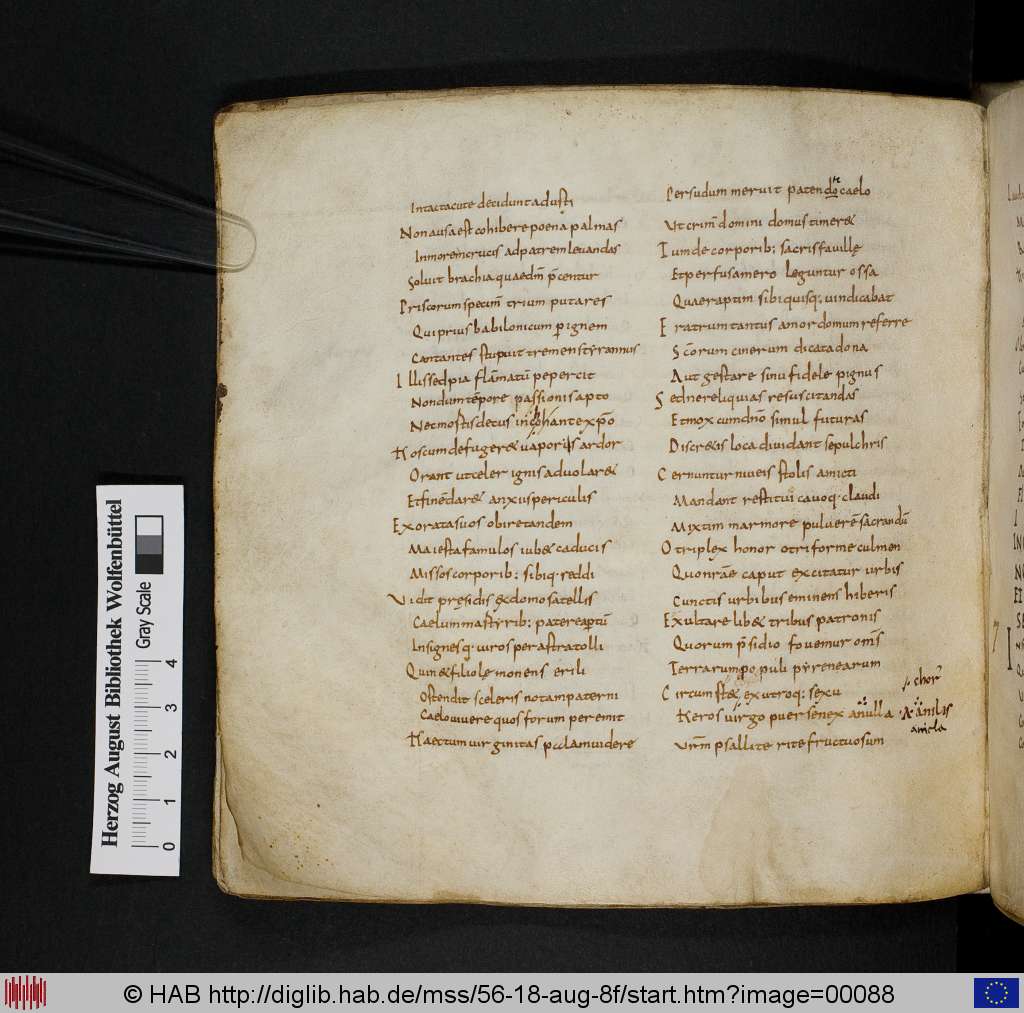 Intactae cute decidunt adusti
Non ausa est cohibere poena palmas
Inmorem crucis ad patrem leuandas
Soluit brachia quae dm̄ p̄centur
Priscorum specim̄ trium putares
Qui prius babilonicum p ignem
Cantantes stupuit tremens tyrannus
Illis sed pia flāmatū pepercit
Nondum tēpore passionis apto
Nec mostis decus inchohante xp̄o
Hos cum defugeret uaporis ardor
Orant ut celer ignis aduolaret
Et finē daret anxius periculis
Exoratas uos obire tandem
Maiesta famulos iubet caducis
Missos corporib: sibiq· reddi
Vidit presidis ex domo satelles
Caelum mastyrib: patere aptū
Insignesq· uiros per astra tolli
Quin et filiole monens erili
Ostendit sceleris notam paterni
Caelo uiuere quos forum peremit
Haec tum uirginitas pclam uidere
Per sudum meruit patendo caelo
Ut crim̄ domini domus timeret
Tum de corporib: sacris fauille
Et perfusa mero leguntur ossa
Quae raptim sibi quisq; uindicabat
Fratrum tantus amor domum referre
Sc̄orum cinerum dicata dona
Aut gestare sinu fidele pignus
Sed ne reliquias resuscitandas
Et mox cum dn̄o simul futuras
Discretis loca diuidant sepulchris
Cernuntur niueis stolis amicti
Mandant restitui cauoq· claudi
Mixtim marmore puluerē sacrandū
O triplex honor o triforme culmen
Quo nr̄ae caput excitatur urbis
Cunctis urbibus eminens hiberis
Exultare libet tribus patronis
Quorum p̄sidio fouemur om̄s
Terrarum populi pyrenearum
Circumstet ex utroq: sexu
chor
Heros uirgo puer senex anulla
Anilis
anicla
Urm̄ psallite rite fructuosum
Herzog August Bibliothek Wolfenbüttel
Gray Scale
0 1 2 3 4
© HAB http://diglib.hab.de/mss/56-18-aug-8f/start.htm?image=00088